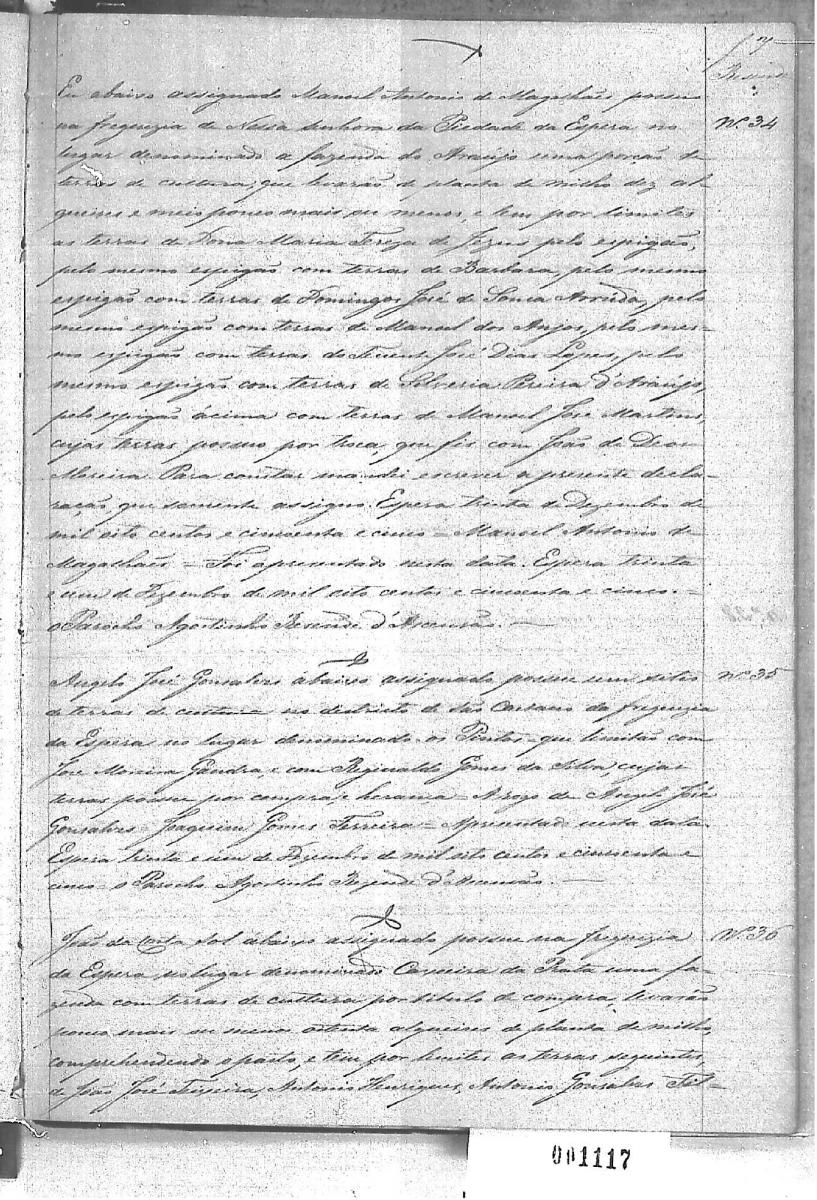 7
Resende
Eu abaixo assignado Manoel Antonio de Magalhães possuo
Nº 34
na freguezia de Nossa Senhora da Piedade da Espera no
lugar denominado a fazenda do Araujo uma porcão de
terras de cultura, que levarão de planta de milho dez al-
queires e meio pouco mais ou menos, e tem por limites
as terras de Dona Maria Tereza de Jezus pelo espigão,
pelo mesmo espigão com terras de Barbara, pelo mesmo
espigão com terras de Domingos José de Souza Arruda, pelo
mesmo espigão com terras de Manoel dos Anjos, pelo mes-
mo espigão com terras do Tenente José Dias Lopes, pelo
mesmo espigão com terras de Silveria Pereira d'Araujo,
pelo espigão acima com terras de Manoel José Martins,
cujas terras possuo por troca, que fis com João de Deos
Moreira. Para constar mandei escrever a presente decla-
ração, que somente assigno. Espera trinta de Dezembro de
mil oito centos e cincoenta e cinco = Manoel Antonio de
Magalhães = Foi apresentado nesta data. Espera trinta
e um de Dezembro de mil oito centos e cincoenta e cinco. =
o Parocho Agostinho Resende d'Ascensão. —
Angelo José Gonsalves abaixo assignado possue um sitio
Nº 35
de terras de cultura no districto de São Caetano da freguezia
da Espera no lugar denominado os Pintos que limitão com
José Moreira Gandra, e com Reginaldo Gomes da Silva, cujas
terras possue por compra, e herança = Arogo de Angelo José
Gonsalves = Joaquim Gomes Ferreira = Aprezentado nesta data.
Espera trinta e um de Dezembro de mil oito centos e cincoenta e
cinco = o Parocho Agostinho Rezende d'Ascensão. —
João da Costa Sol abaixo assignado possue na freguezia
Nº 36
da Espera no lugar denominado Caxoeira da Prata uma fa-
zenda com terras de cultura por titulo de compra, levarão
pouco mais ou menos oitenta alqueires de planta de milho,
comprehendendo o pasto, e tem por limites as terras seguintes,
de João José Teixeira, Antonio Henriques, Antonio Gonsalves Fel-
001117